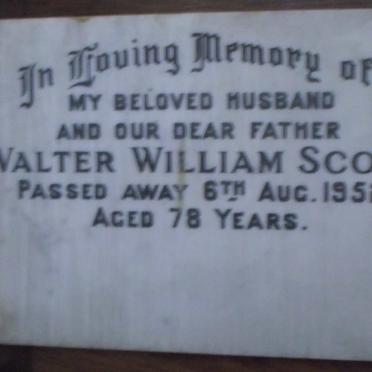 In Loving Memory of
MY BELOVED HUSBAND
AND OUR DEAR FATHER
WALTER WILLIAM SCO
PASSED AWAY 6TH AUG. 195
AGED 78 YEARS.